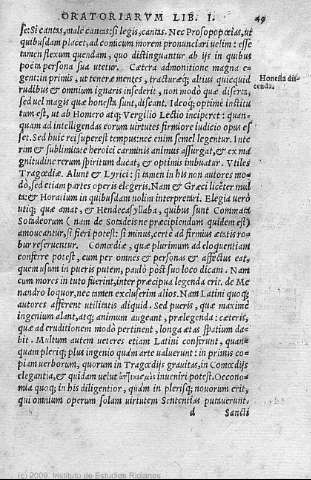 ORATORIARVM LIB. I. 49
se: Si cantas, male cantas: si legis, cantas. Nec Prosopopœias, ut
quibusdam placet, ad comicum morem pronunciari uelim: esse
tamen flexum quendam, quo distinguantur ab ijs in quibus
poëta persona sua utetur. Cætera admonitione magna e-
gent: in primis, ut teneræ mentes, tracturæq; altius quicquid
rudibus & omnium ignaris insederit, non modò quæ diserta,
sed uel magis quæ honesta sunt, discant. Ideoq; optimè institu
tum est, ut ab Homero atq; Vergilio Lectio inciperet: quan-
quam ad intelligendas eorum uirtutes firmiore iudicio opus es
set. Sed huic rei superest tempus: nec enim semel legentur. Inte
rim & sublimitate heroici carminis animus assurgat, & ex ma
gnitudine rerum spiritum ducat, & optimis imbuatur. Vtiles
Tragœdiæ. Alunt & Lyrici: si tamen in his non autores mo-
dò, sed etiam partes operis elegeris. Nam & Græci licēter mul
ta: & Horatium in quibusdam nolim interpretari. Elegia uerò
utiq; quæ amat, & Hendecasyllaba, quibus sunt Commata
Sotadeorum (nam de Sotadeis ne præcipiendum quidem est)
amoueantur, si fieri potest: si minus, certè ad firmius ætatis ro-
bur reseruentur. Comœdiæ, quæ plurimum ad eloquentiam
conferre potest, cum per omnes & personas & affectus eat,
quem usum in pueris putem, paulò pòst suo loco dicam. Nam
cum mores in tuto fuerint, inter præcipua legenda erit. de Me-
nandro loquor, nec tamen excluserim alios. Nam Latini quoq;
autores afferent utilitatis aliquid. Sed pueris, quæ maximè
ingenium alant, atq; animum augeant, prælegenda: cæteris,
quæ ad eruditionem modò pertinent, longa ætas spatium da-
bit. Multum autem ueteres etiam Latini conferunt, quan-
quam pleriq; plus ingenio quàm arte ualuerunt: in primis co-
piam uerborum, quorum in Tragœdijs grauitas, in Comœdijs
elegantia, & quidam uelut ἀττικισμὸς inueniri potest. Oecono-
mia quoq; in his diligentior, quàm in plerisq; nouorum erit,
qui omnium operum solam uirtutem Sententias putauerunt.
d Sancti
Honesta dis-
cenda.
(c) 2009, Instituto de Estudios Riojanos